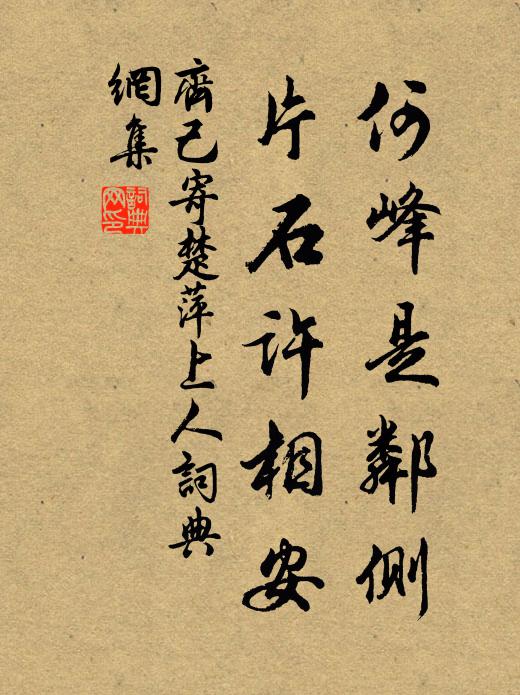 何峰是鄰側
片石許相安
齊己寄楚萍上人詞典
網集
詞典
网印